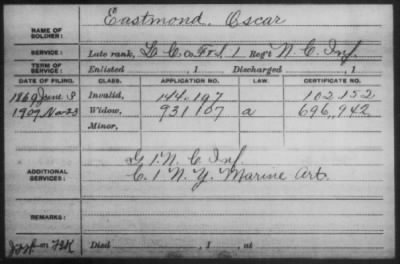 Eastmond, Oscar
NAME OF SOLDIER:
SERVICE: Late rank, L. C. Co. F&S, 1 Reg't N. C. Inf.
TERM OF SERVICE: Enlisted , 1 Discharged , 1
DATE OF FILING. CLASS. APPLICATION NO. LAW. CERTIFICATE NO.
1869 June 8 Invalid, 144.197 102.152
1907 Nov 23 Widow, 931107 a 696,942
Minor,
G 1 N. C. Inf.
ADDITIONAL SERVICES: C. 1 N. Y. Marine Art.
REMARKS:
Died , 1 , at